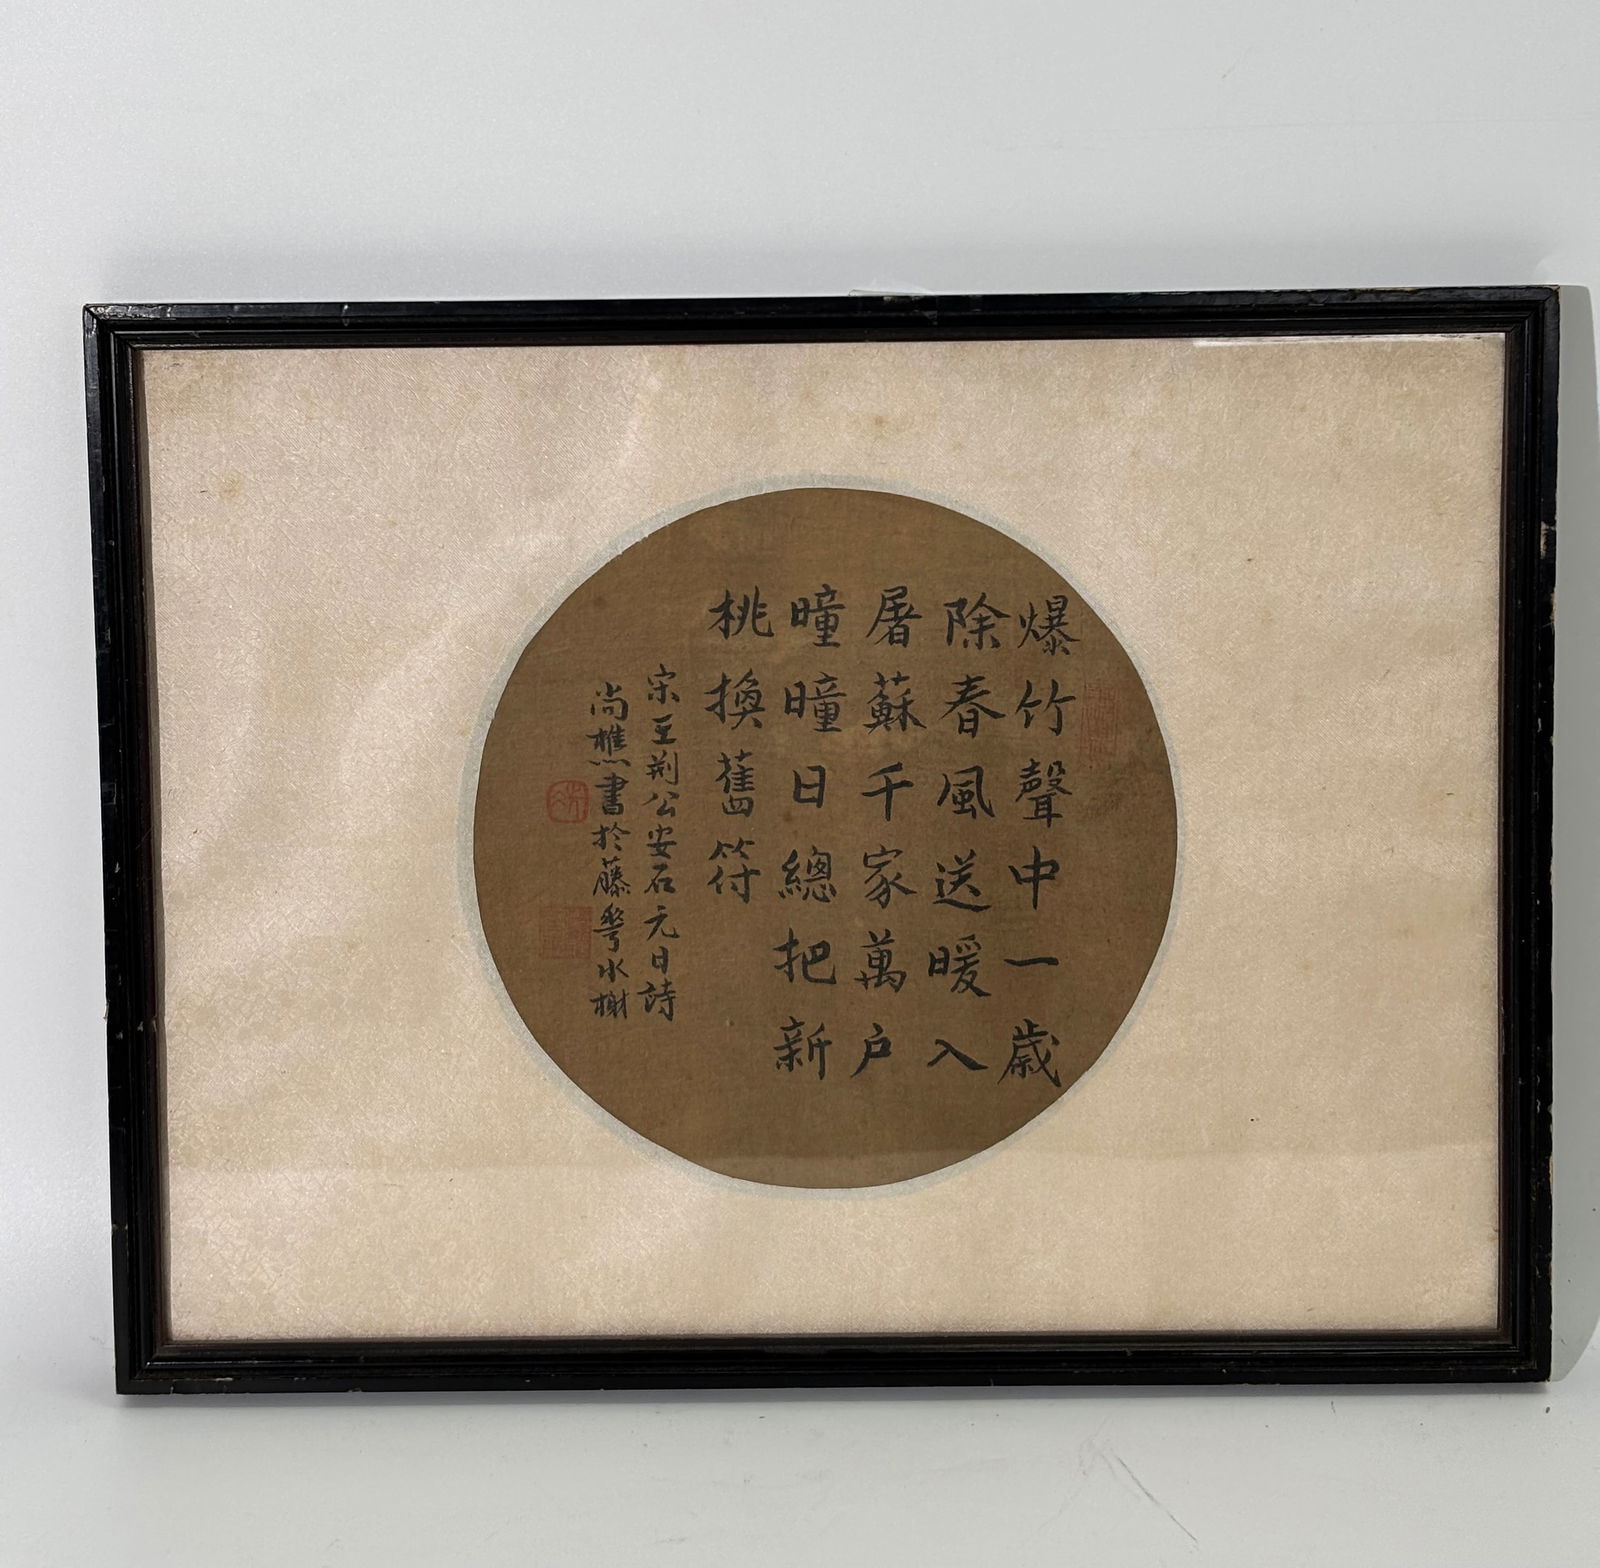 爆竹聲中一歲
除春風送暖入
屠蘇千家萬户
曈曈日總把新
桃換舊符
宋王荆公安石元日詩
尚樵書於藤萼水榭